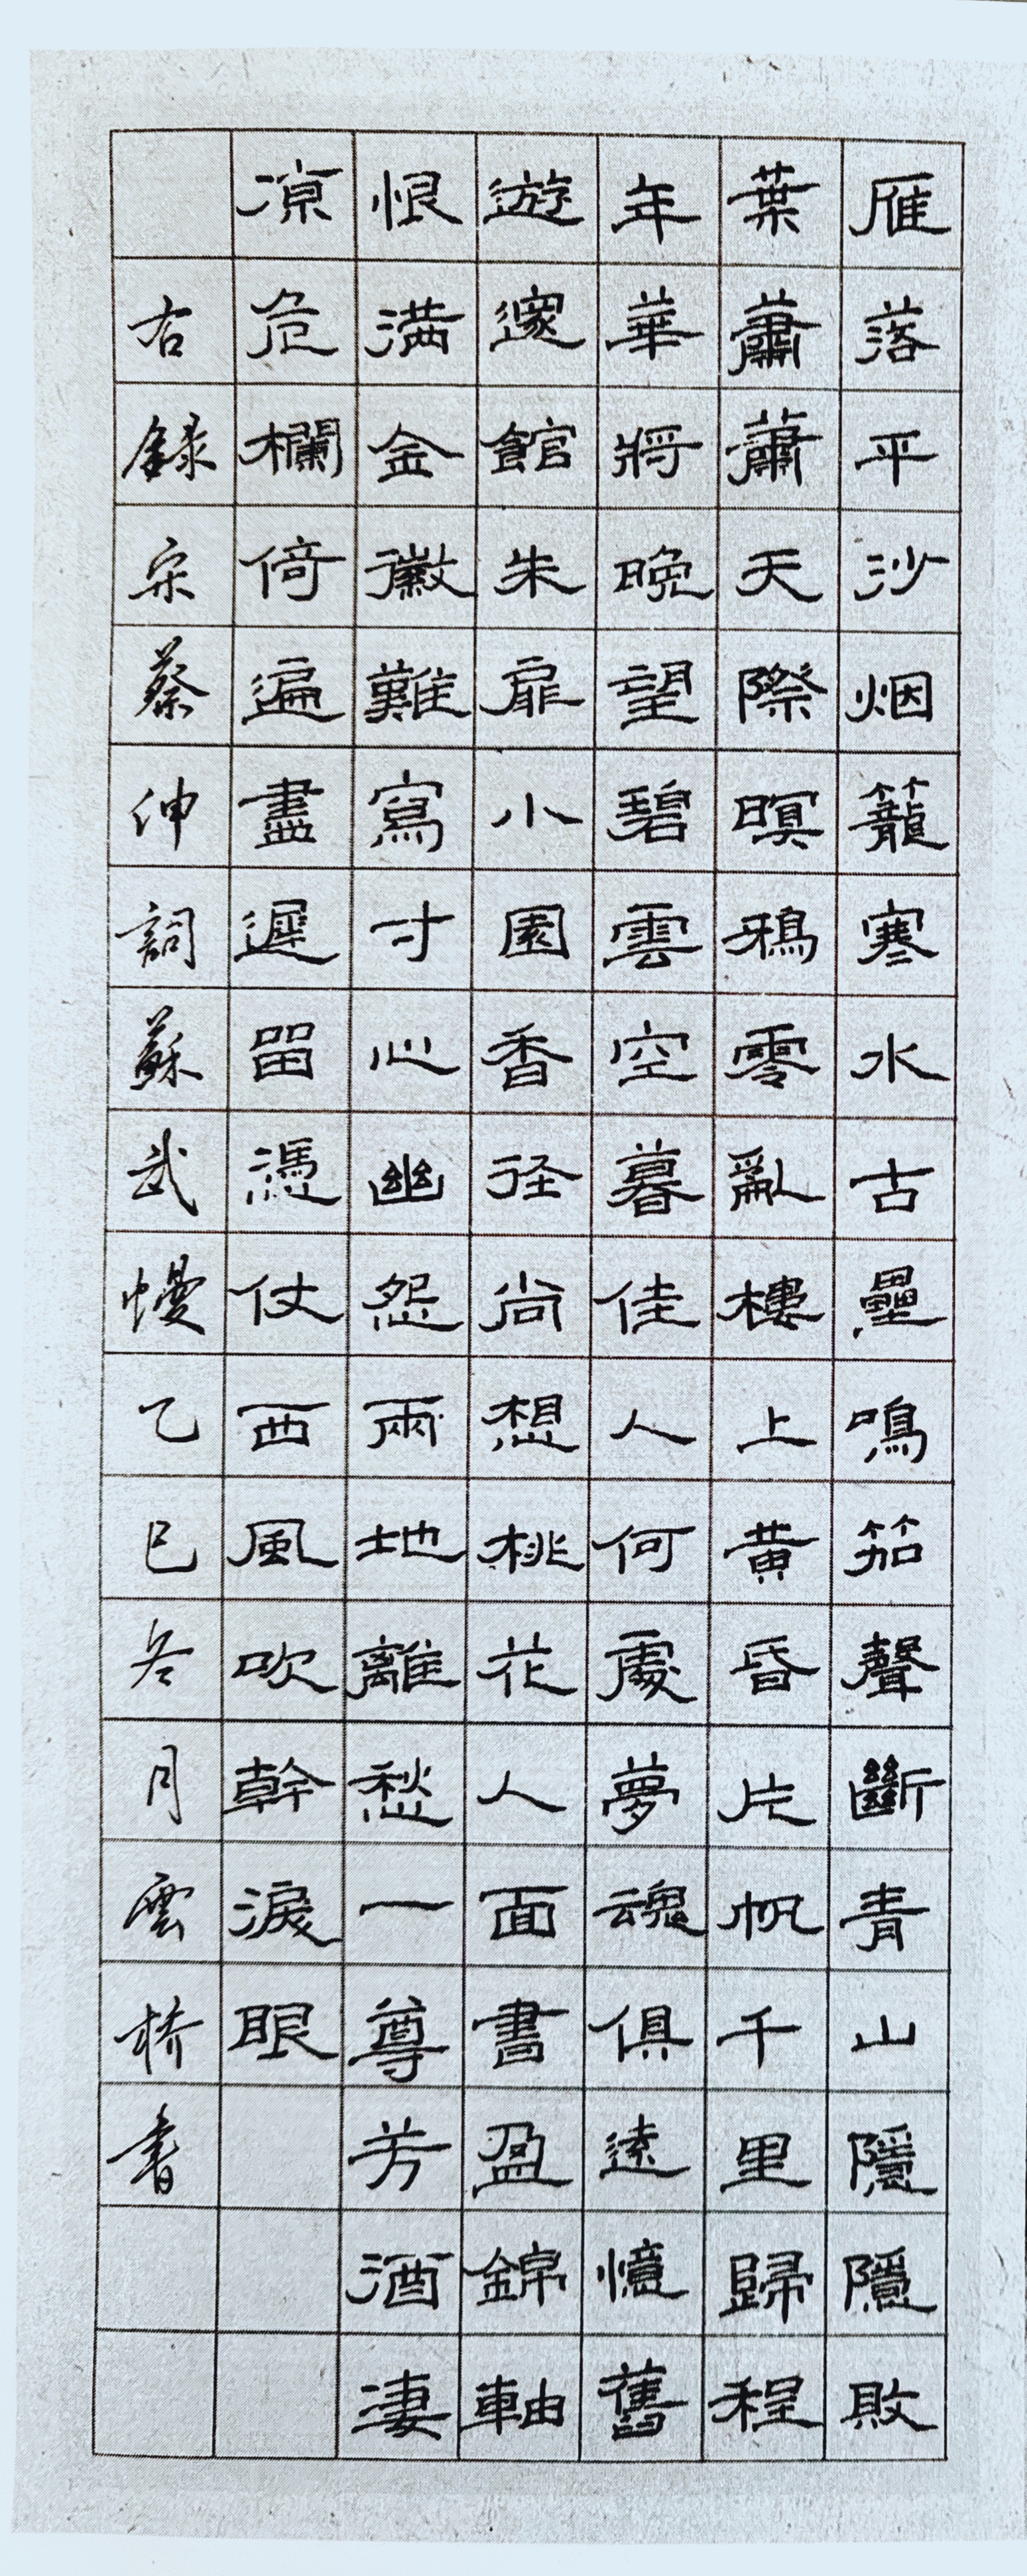 雁落平沙烟籠寒水古壘鳴笳聲斷青山隱隱敗
葉蕭蕭天際暝鴉零亂樓上黄昏片帆千里歸程
年華將晚望碧雲空暮佳人何處夢魂俱遠憶舊
遊邃館朱扉小園香径尚想桃花人面書盈錦軸
恨满金徽難寫寸心幽怨兩地離愁一尊芳酒凄
凉危欄倚遍盡遲留憑仗西風吹幹淚眼
右錄宋蔡伸詞蘇武慢乙巳冬月雲橋書